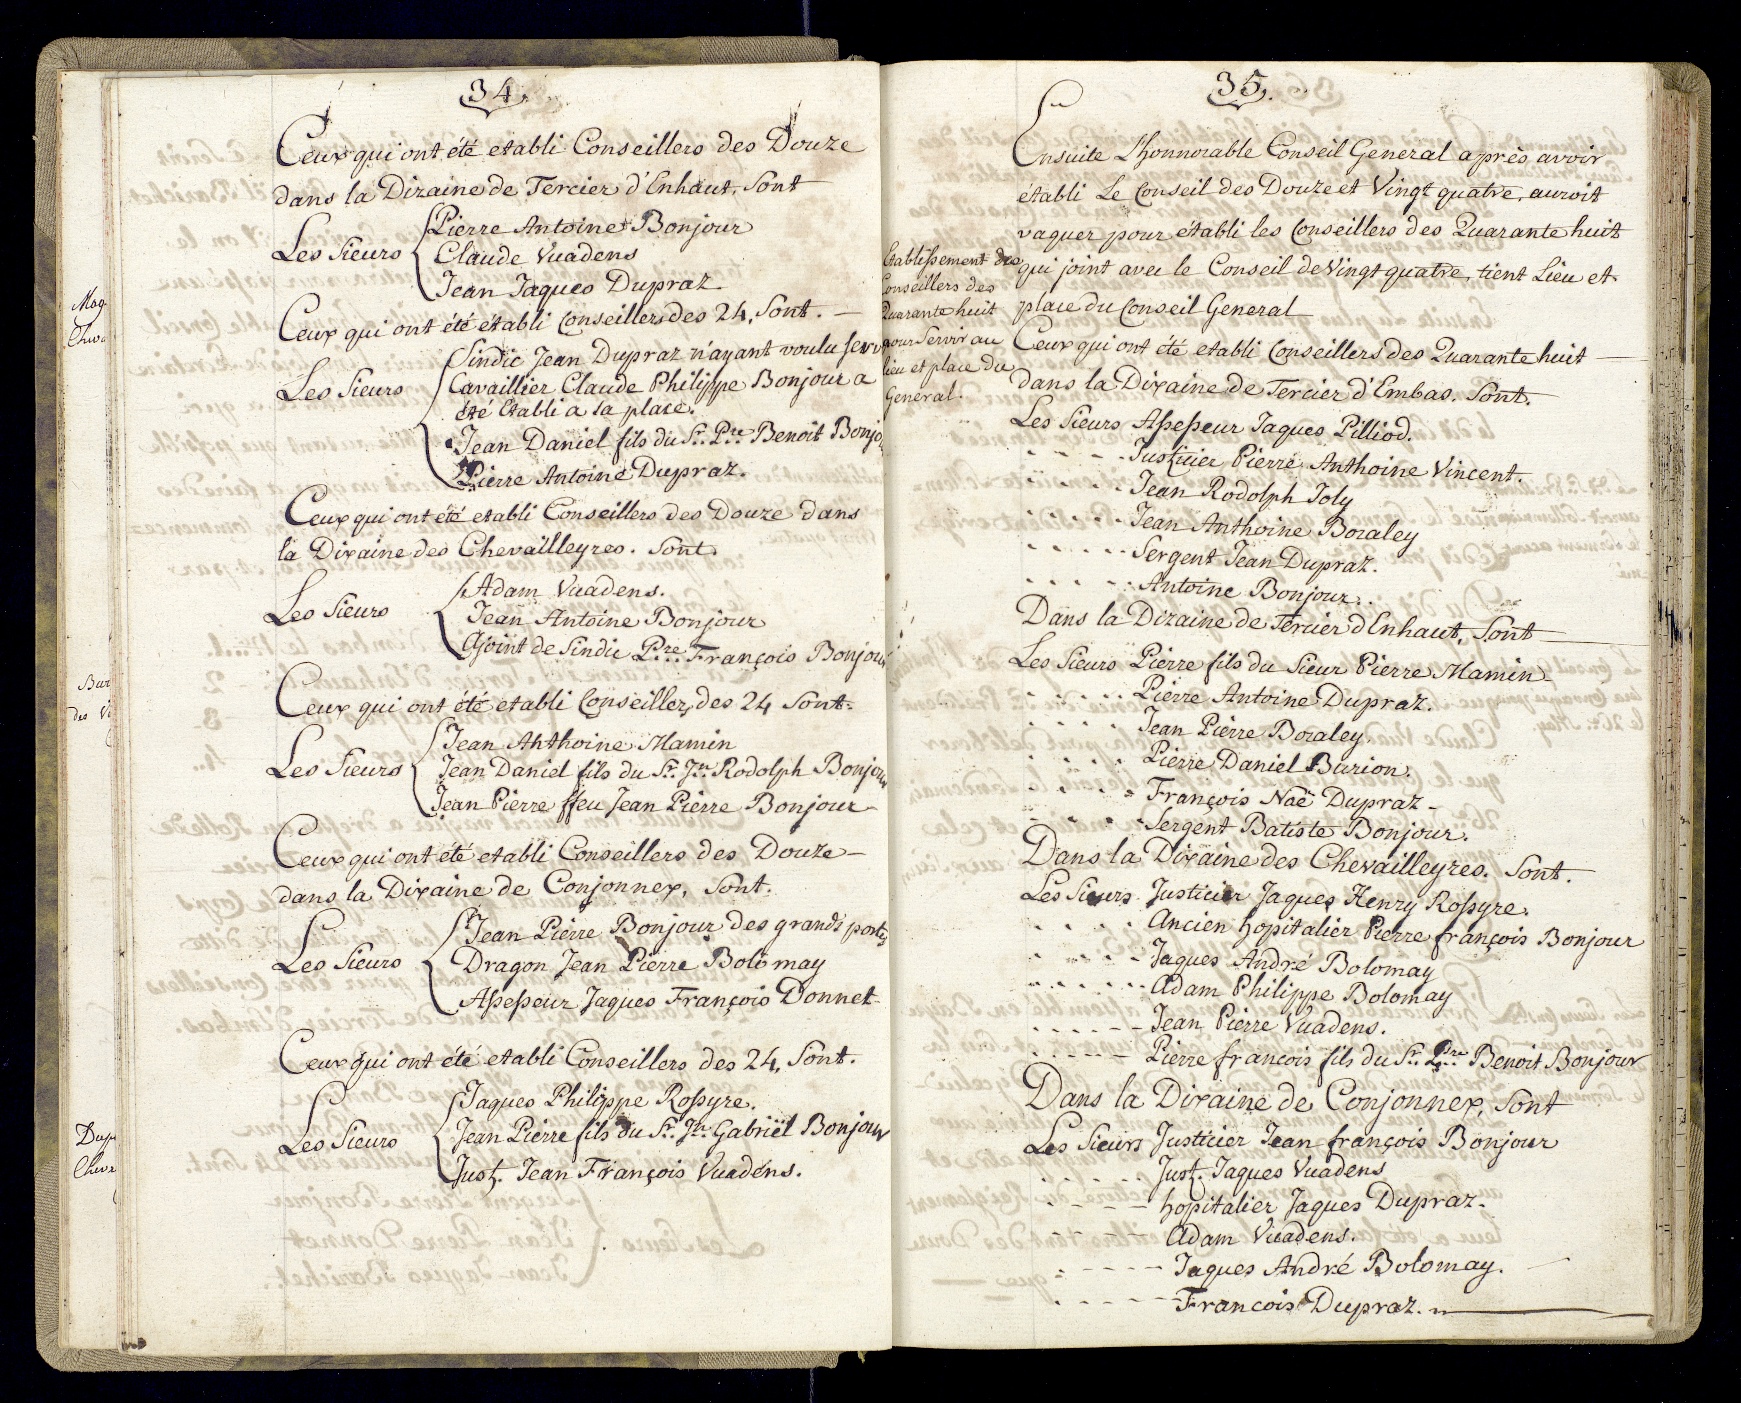 34.
Ceux qui ont été etabli Conseillers des Douze
dans la Dizaine de Tercier d'Enhaut, Sont
Les Sieurs
Pierre Antoine Bonjour
Claude Vuadens
Jean Jaques Dupraz
Ceux qui ont été etabli Conseillers des 24, Sont. —
Les Sieurs
Sindic Jean Dupraz n'ayant voulu Serv
Cavaillier Claude Philippe Bonjour a
été Etabli a sa place.
Jean Daniel fils du Sr. Pre. Benoit Bonjo
Pierre Antoine Dupraz.
Ceux qui ont été etabli Conseillers des Douze dans
la Dixaine des Chevailleyres. Sont
Les Sieurs
Adam Vuadens.
Jean Antoine Bonjour
Ajoint de Sindic Pre. François Bonjour
Ceux qui ont été etabli Conseillers des 24 Sont.
Les Sieurs
Jean Anthoine Mamin
Jean Daniel fils du Sr. Jn. Rodolph Bonjour
Jean Pierre ffeu Jean Pierre Bonjour
Ceux qui ont été etabli Conseillers des Douze —
dans la Dixaine de Conjonnex, Sont.
Les Sieurs
Jean Pierre Bonjour des grands portes
Dragon Jean Pierre Bolomay
Assesseur Jaques François Donnet
Ceux qui ont été etabli Conseillers des 24, Sont.
Les Sieurs
Jaques Philippe Rossyre.
Jean Pierre fils du Sr. Jn. Gabriël Bonjour
Just. Jean François Vuadens.
Mag
Cheva
Bur
des V
Dup
Cheva
35.
Ensuite L'honnorable Conseil General après avoir
établi Le Conseil des Douze et Vingt quatre, auroit
vaquer pour établi les Conseillers des Quarante huit
qui joint avec le Conseil de Vingt quatre, tient Lieu et
place du Conseil General
Etablissement des
Conseillers des
Quarante huit
pour Servir au
lieu et place du
General.
Ceux qui ont été etabli Conseillers des Quarante huit —
dans la Dixaine de Tercier d'Embas. Sont.
Les Sieurs Assesseur Jaques Pilliod.
- - - - Justicier Pierre Anthoine Vincent.
- - - - Jean Rodolph Joly
- - - - Jean Anthoine Boraley
- - - - Sergent Jean Dupraz.
- - - - Antoine Bonjour.
Dans la Dizaine de Tercier d'Enhaut, Sont —
Les Sieurs Pierre fils du Sieur Pierre Mamin
- - - - Pierre Antoine Dupraz.
- - - - Jean Pierre Boraley
- - - - Pierre Daniel Burion.
- - - - François Noë Dupraz -
- - - - Sergent Batiste Bonjour.
Dans la Dixaine des Chevailleyres. Sont.
Les Sieurs Justicier Jaques Henry Rossyre.
- - - - Ancien hopitalier Pierre françois Bonjour
- - - - Jaques André Bolomay
- - - - Adam Philippe Bolomay
- - - - Jean Pierre Vuadens.
- - - - Pierre francois fils du Sr. Pre. Benoit Bonjour
Dans la Dixaine de Conjonnex, Sont
Les Sieurs Justicier Jean françois Bonjour
- - - - Just. Jaques Vuadens
- - - - hopitalier Jaques Dupraz.
- - - - Adam Vuadens.
- - - - Jaques André Bolomay.
- - - - Francois Dupraz.